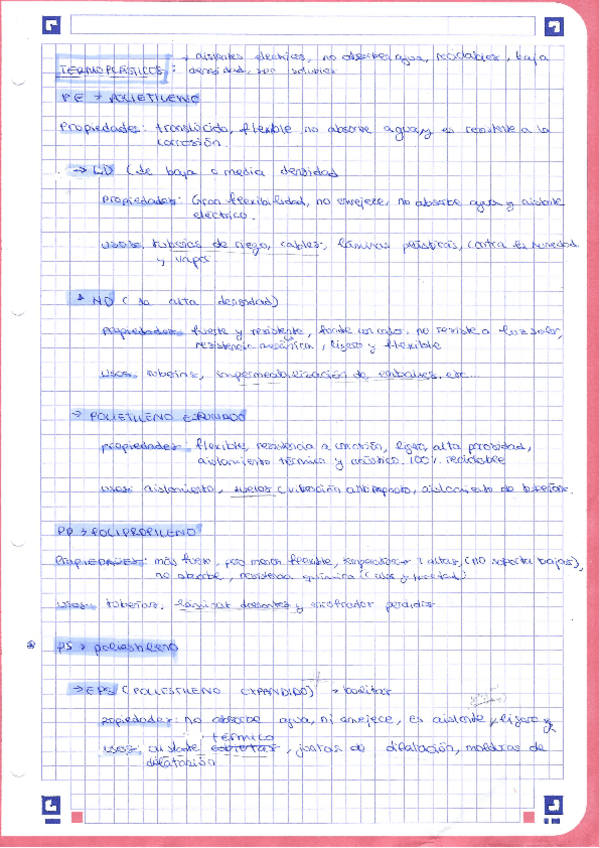 → aislantes electricos, no absorben agua, reciclables, baja
TERMOPLÁSTICOS: densidad, ser soluble
PE → POLIETILENO
Propiedades: translúcido, flexible, no absorve agua y es resistente a la
corrosión.
→ LD (de baja o media densidad
propiedades: Gran flexibilidad, no envejece, no absorbe agua y aislante
eléctrico.
usos: tuberías de riego, cables, láminas plásticas, contra la humedad
y vapor
→ HD (de alta densidad)
propiedades: fuerte y resistente, no resiste a luz solar,
resistencia mecánica, ligero y flexible
usos: tuberías, impermeabilización de embalses, etc...
→ POLIETILENO EXPANDIDO
propiedades: flexible, resistencia a corrosión, ligero, alta porosidad,
aislamiento térmico y acústico. 100% reciclable
usos: aislamiento, suelos (vibración antiimpacto, aislamiento de tuberías.
PP → POLIPROPILENO
Propiedades: más fuerte, pero menos flexible, altas, (no soporta bajas),
no absorbe, resistencia química
usos: tuberías, láminas drenantes y encofrador perdidos
PS → poliestileno
→ EPS (POLIESTILENO EXPANDIDO) → bolitas
propiedades: no absorbe agua, ni envejece, es aislante, ligero y
térmico
usos: aislante, juntas de dilatación, molduras de
dilatación